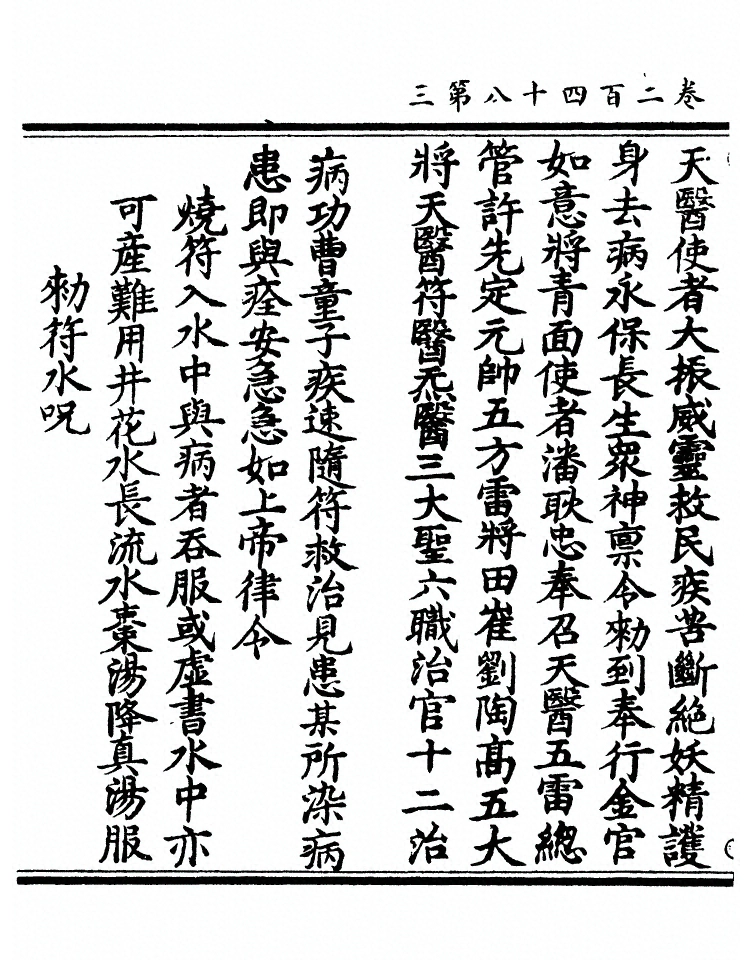 卷二百四十八第三
天醫使者大振威靈救民疾苦斷絶妖精護
身去病永保長生眾神禀令勑到奉行金官
如意將青面使者潘耿忠奉召天醫五雷總
管許先定元帥五方雷將田崔劉陶高五大
將天醫符醫炁醫三大聖六職治官十二治
病功曹童子疾速隨符救治見患某所染病
患即與痊安急急如上帝律令
燒符入水中與病者吞服或虛書水中亦
可產難用井花水長流水棗湯降真湯服
勑符水呪